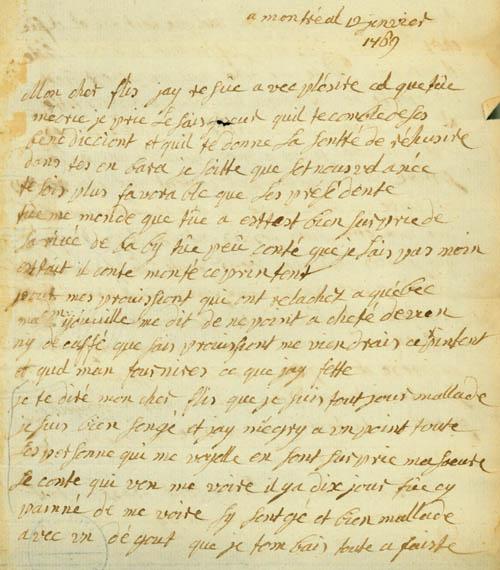 a montréal 12 jenvier
1769
Mon cher fils jay resûe avec plésire cel que tûe
mécrie je prie le saigneur quil te comble de ses
bénédiccions et quil te donne la sentté de réhusire
dans tes en bara je soitte que set nouvel ancée
te sois plus favorable que les présédente
tûe me mende que tûe a ettest bien surprie de
la rivée de baby tûe peût conté que je sais pas moin
il conte monté ce printent
pour mes provissiont que ont relachez a québec
me dit de ne point a cheté de vien
ny de caffé que sais provissiont me viendrais ce printent
et quil man fournires ce que jay fette
je te diré mon cher flis que je suis toutjour mallade
je suis bien songé et jay méegry a un point toute
les personne qui me voyelle en sont surprie ma soeure
le conte qui ven me voire il ya dix jour fûe sy
painné de me voire sy sentgé et bien mallade
avec un dégout que je tombais toute a faiste